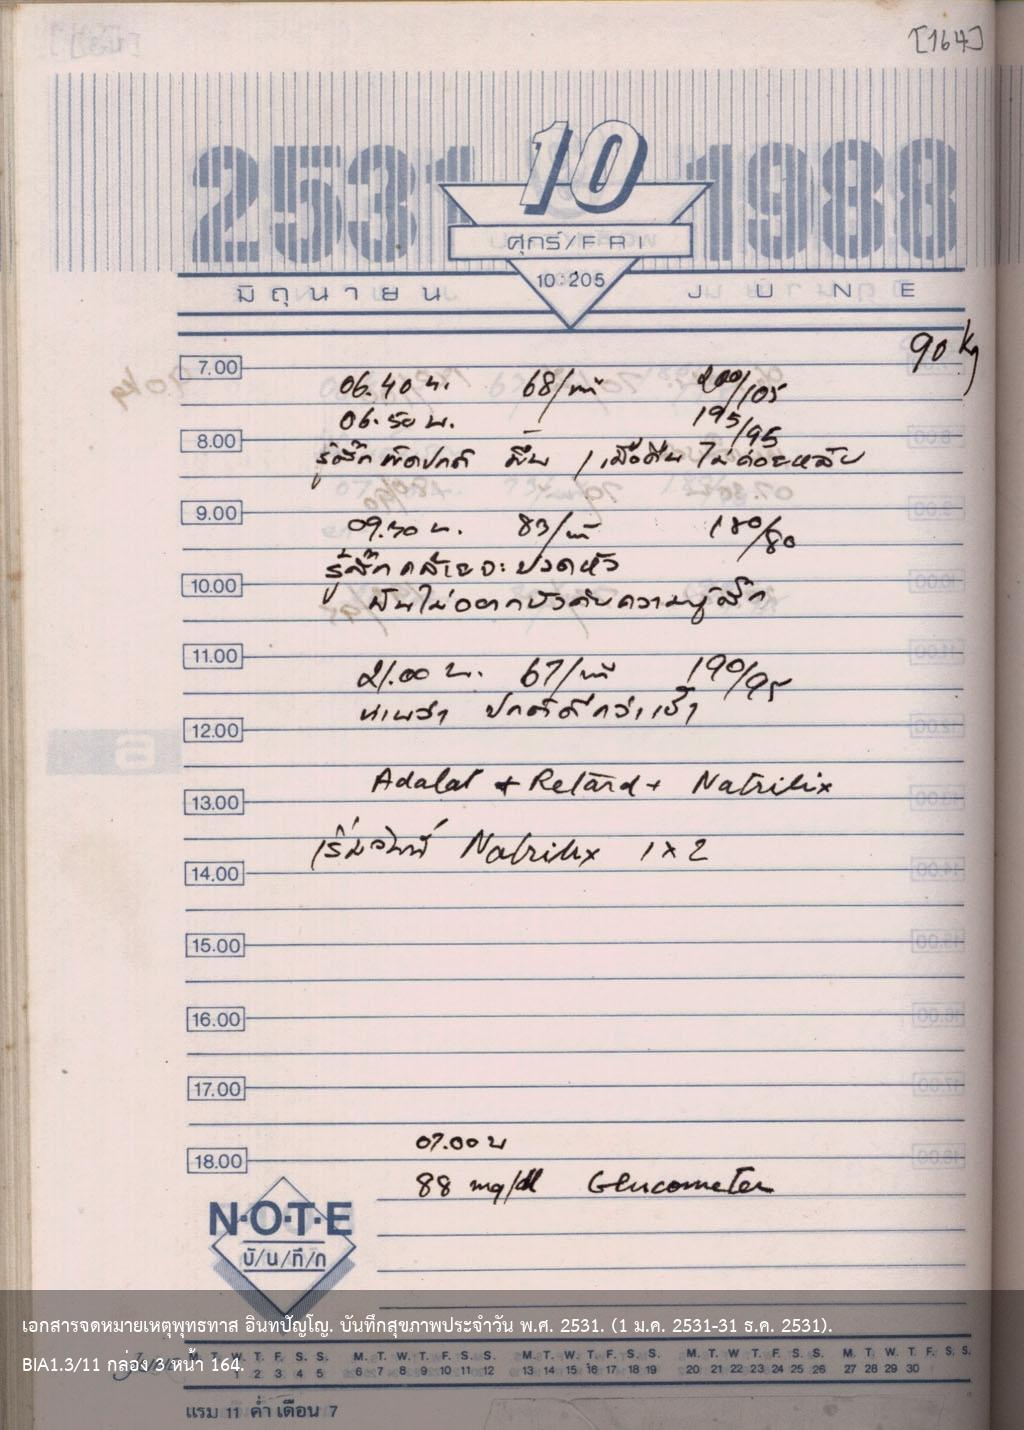 [164]
2531 10 1988
ศุกร์/FRI
10:205
มิถุนายน JUNE
90 kg
7.00
06.40 น. 68/นาที 200/105
06.50 น. 195/95
8.00
รู้สึกผิดปกติ มึน / เมื่อคืน ไม่ค่อยหลับ
9.00
09.30 น. 83/นาที 180/80
รู้สึกคล้ายจะปวดหัว
10.00
มันไม่ออกมากับความรู้สึก
11.00
21.00 น. 67/นาที 190/95
ปกติดีกว่าเช้า
12.00
Adalat + Retard + Natrilix
13.00
Natrilix 1x2
14.00
15.00
16.00
17.00
07.00 น
18.00
88 mg/dl Glucometer
N·O·T·E
บั/น/ทึ/ก
เอกสารจดหมายเหตุพุทธทาส อินทปัญโญ. บันทึกสุขภาพประจำวัน พ.ศ. 2531. (1 ม.ค. 2531-31 ธ.ค. 2531).
BIA1.3/11 กล่อง 3 หน้า 164.
M. T. W. T. F. S. S. M. T. W. T. F. S. S. M. T. W. T. F. S. S. M. T. W. T. F. S. S. M. T. W. T. F. S. S.
1 2 3 4 5 6 7 8 9 10 11 12 13 14 15 16 17 18 19 20 21 22 23 24 25 26 27 28 29 30
แรม 11 ค่ำ เดือน 7